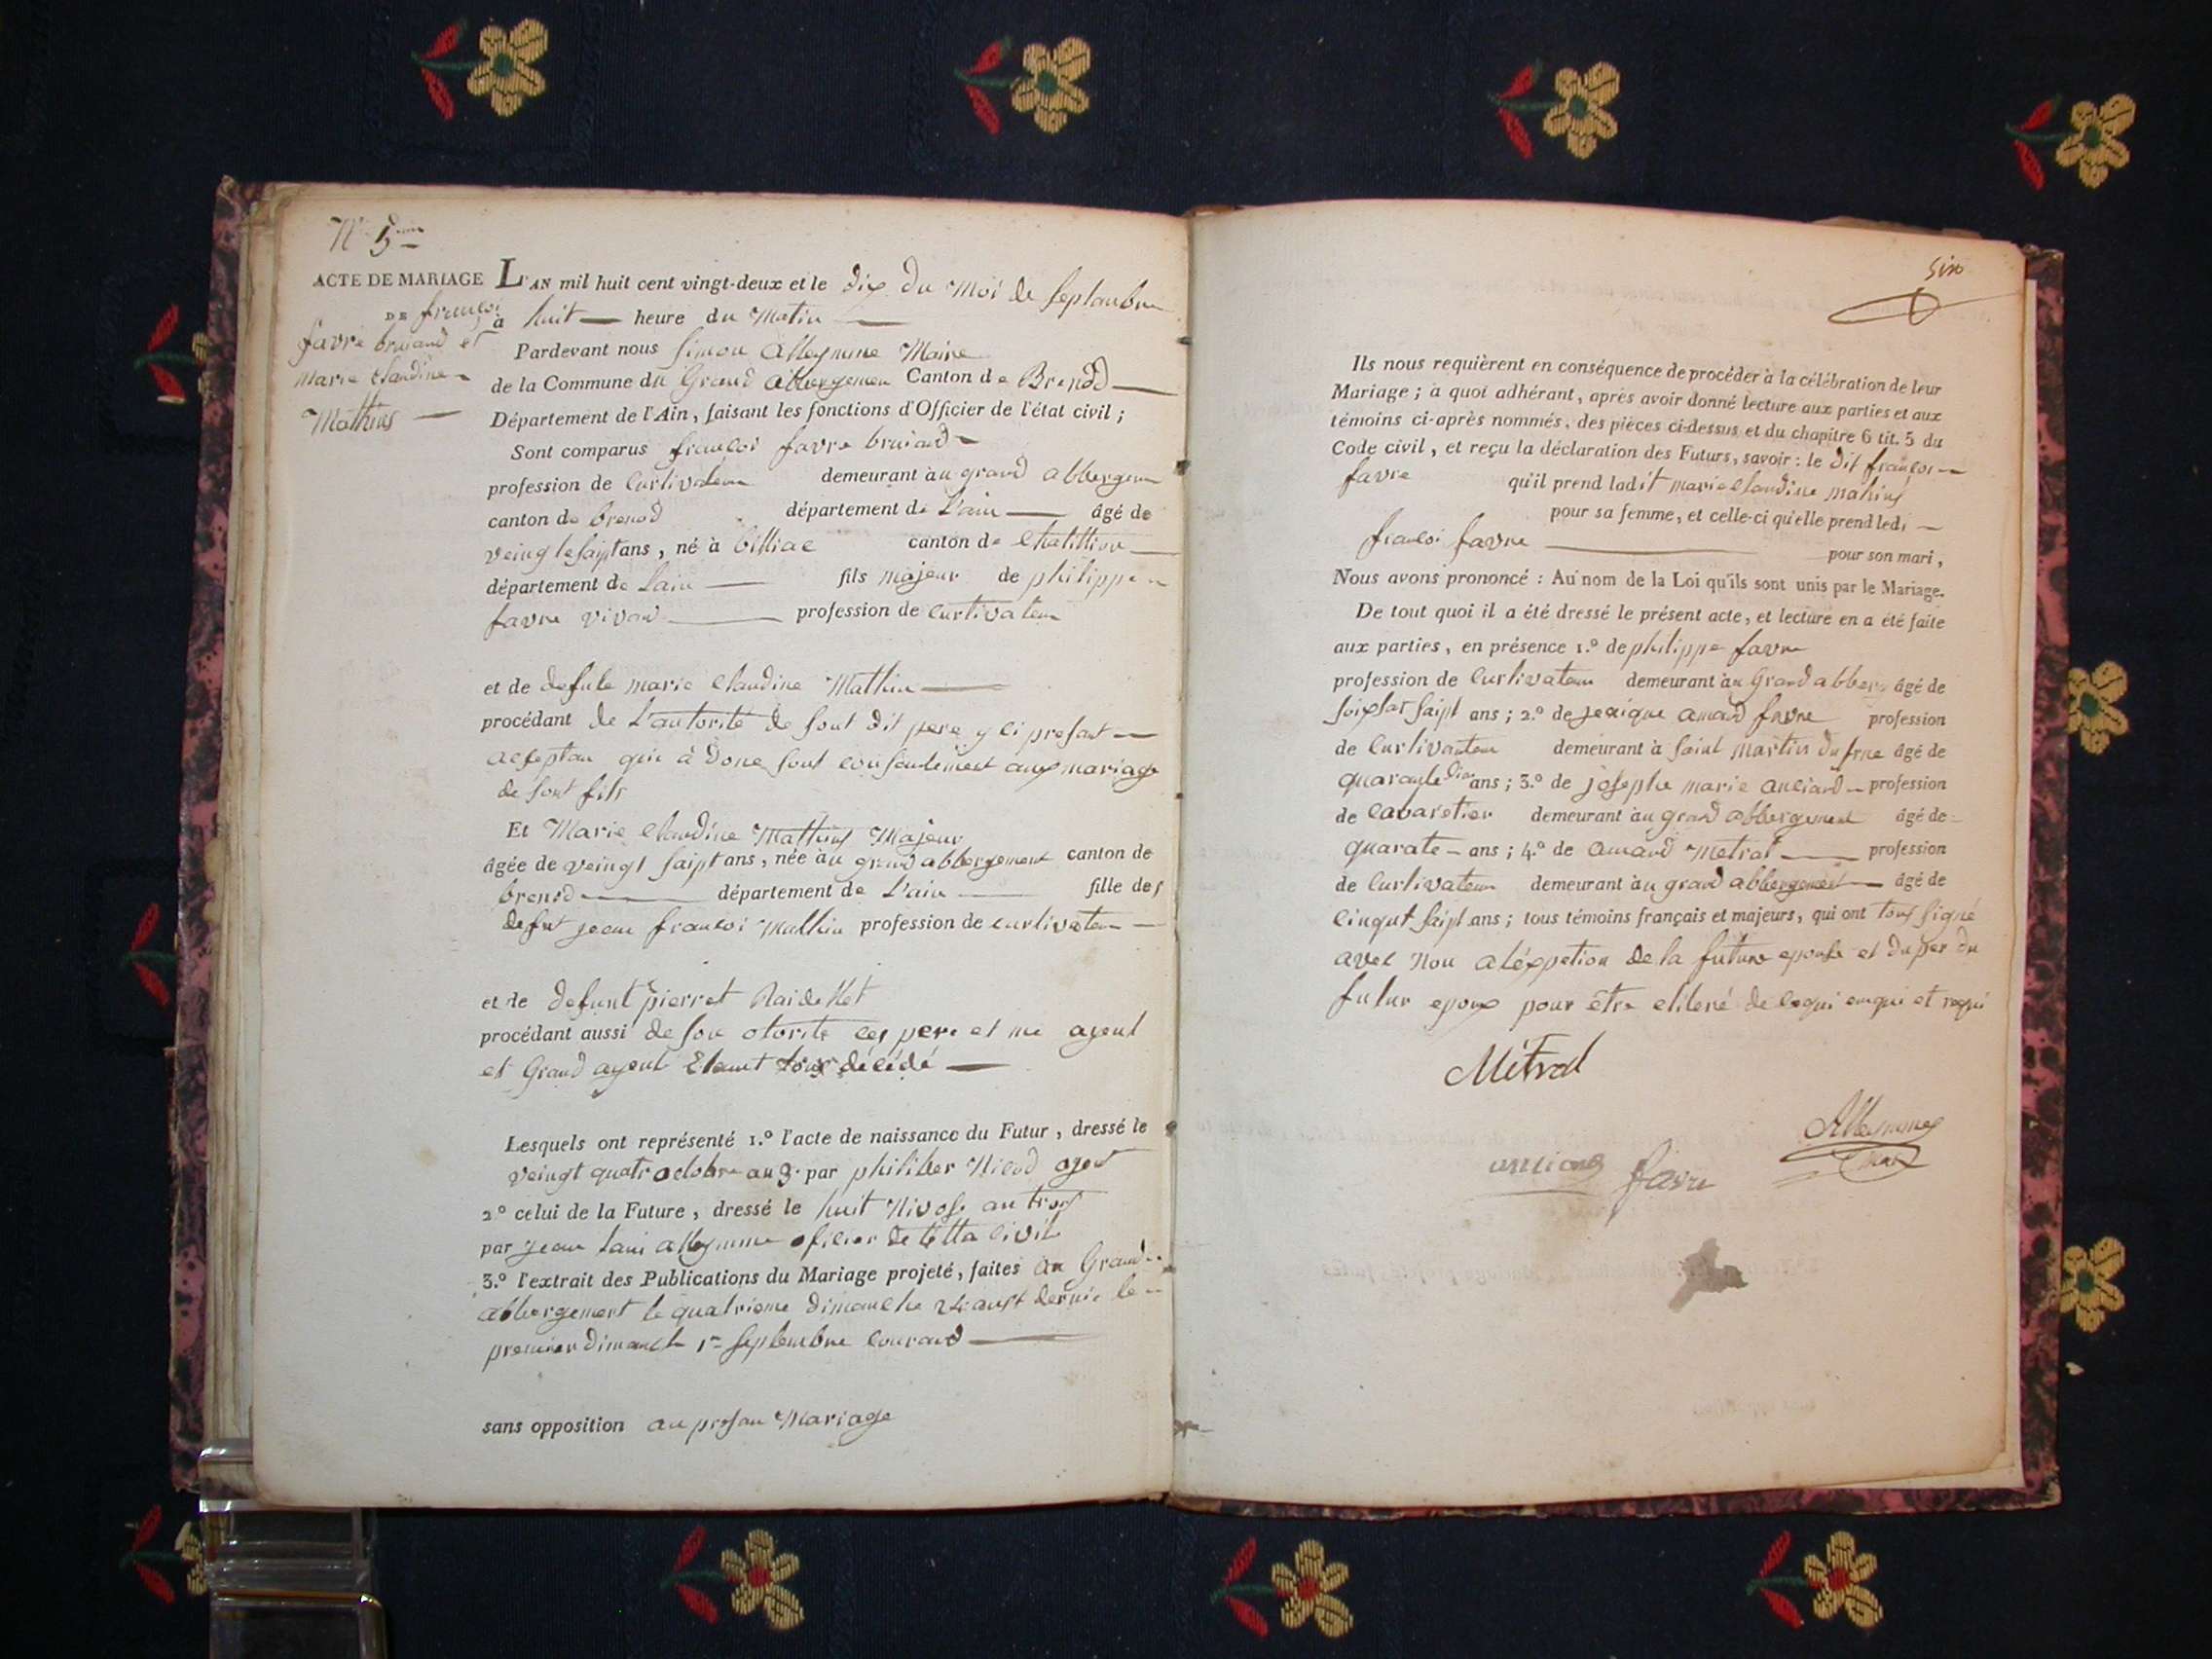 N° 5
ACTE DE MARIAGE
DE françoi
favre bruiand et
marie claudine
Mathius
L'AN mil huit cent vingt-deux et le dix du moi de septambre
à huit heure du Matin
Pardevant nous simon alleymme Maire
de la Commune du Grand abbergemen Canton de Brenod
Département de l'Ain, faisant les fonctions d'Officier de l'état civil;
Sont comparus françoi favre bruiand
profession de curtivateur demeurant au grand abbergem
canton de brenod département de L'ain âgé de
veingtesaipt ans, né à billiac canton de Chatillion
département de Lain fils majeur de philippe
favre vivand profession de curtivateur
et de defute marie claudine Mathiu
procédant de L'autorité de sont dit pere y ci presant
acseptan qui à done sont consentement aux mariage
de sont fils
Et Marie claudine Mathius Majeur
âgée de veingt saipt ans, née au grand abbergement canton de
brenod département de L'ain fille des
defut jean françoi Mathiu profession de curtivateur
et de defunt pierret
procédant aussi de son otorite ces pere et me ayeul
et Grand ayeul Etant tous décédé
Lesquels ont représenté 1.° l'acte de naissance du Futur, dressé le
veingt quatr octobre an 3. par philiber Nicod agent
2° celui de la Future, dressé le huit Nivose an trois
par jean alleymme oficier de tétta civil
3.° l'extrait des Publications du Mariage projeté, faites au Grand
abbergement le quatrieme dimanche aust dernie le
premier dimanch 1er septembre courand
sans opposition au presan Mariage
six
Ils nous requièrent en conséquence de procéder à la célébration de leur
Mariage; à quoi adhérant, après avoir donné lecture aux parties et aux
témoins ci-après nommés, des pièces ci-dessus et du chapitre 6 tit. 5 du
Code civil, et reçu la déclaration des Futurs, savoir: le dit françoi
favre qu'il prend ladit marie claudine mahius
pour sa femme, et celle-ci qu'elle prend ledi
françoi favre pour son mari,
Nous avons prononcé: Au nom de la Loi qu'ils sont unis par le Mariage.
De tout quoi il a été dressé le présent acte, et lecture en a été faite
aux parties, en présence 1.° de philippe favre
profession de curtivateur demeurant au Grand abber âgé de
saipt ans; 2.° de amand favre profession
de curtivateur demeurant à saint martin du frne âgé de
quarante dix ans; 3.° de josephe marie anciand profession
de cabaretier demeurant au grand abbergement âgé de
quarate ans; 4.° de amand Metrat profession
de curtivateur demeurant au grand abbergement âgé de
cinqut saipt ans; tous témoins français et majeurs, qui ont tous signé
avec nou aléxpetion de la future epouse et du per du
futur epoux pour être elileré de ceqni enqui et reqni
Métral
Alleymme
Maire
anciand favre